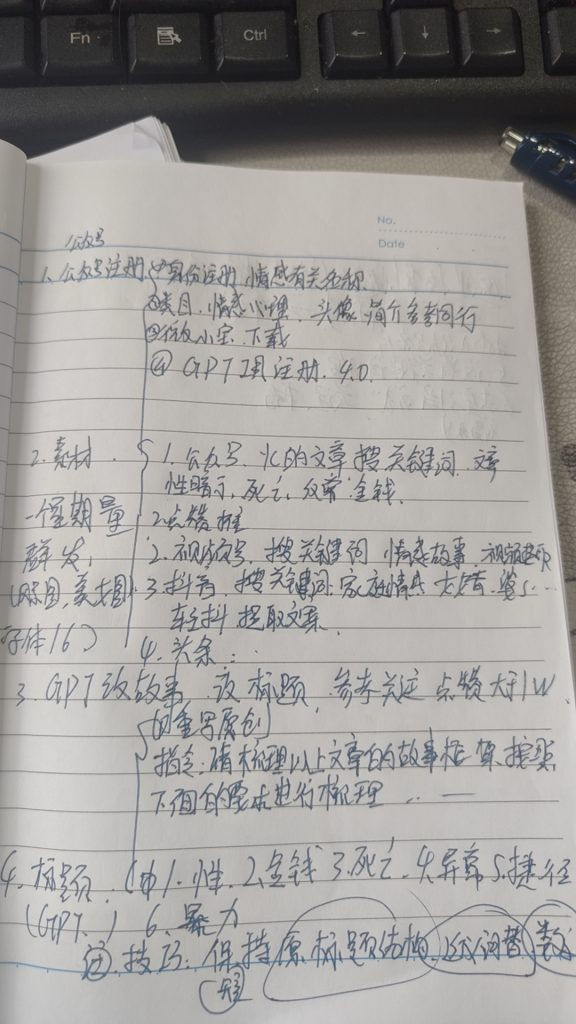 Fn
Ctrl
←
↓
→
No.
Date
公众号
1. 公众号注册 ①身份注册 情感有关名称
②类目、情感心理、头像 简介参考同行
③ 小宝 下载
④ GPT 注册. 4.0.
2. 素材. 1. 公众号. 火的文章 搜关键词
性暗示, 死亡, 金钱.
一个星期量 2 点赞 推
群发, 2. 视频号, 搜关键词 情感故事
(配图, 美女图) 3. 抖音, 搜关键词. 家庭情
字体16) 轻抖 提取文案.
4. 头条 :
3. GPT改故事 改标题, 参考关注 点赞大于1W
的重写原创
指令: 请梳理以上文章的故事框架, 按照
下面的要求进行梳理 ... —
4. 标题. 1. 性. 2. 金钱 3. 死亡. 4. 异常 5. 捷径
(GPT.) 6. 暴力
技巧: 保持原标题结构, 近义词替